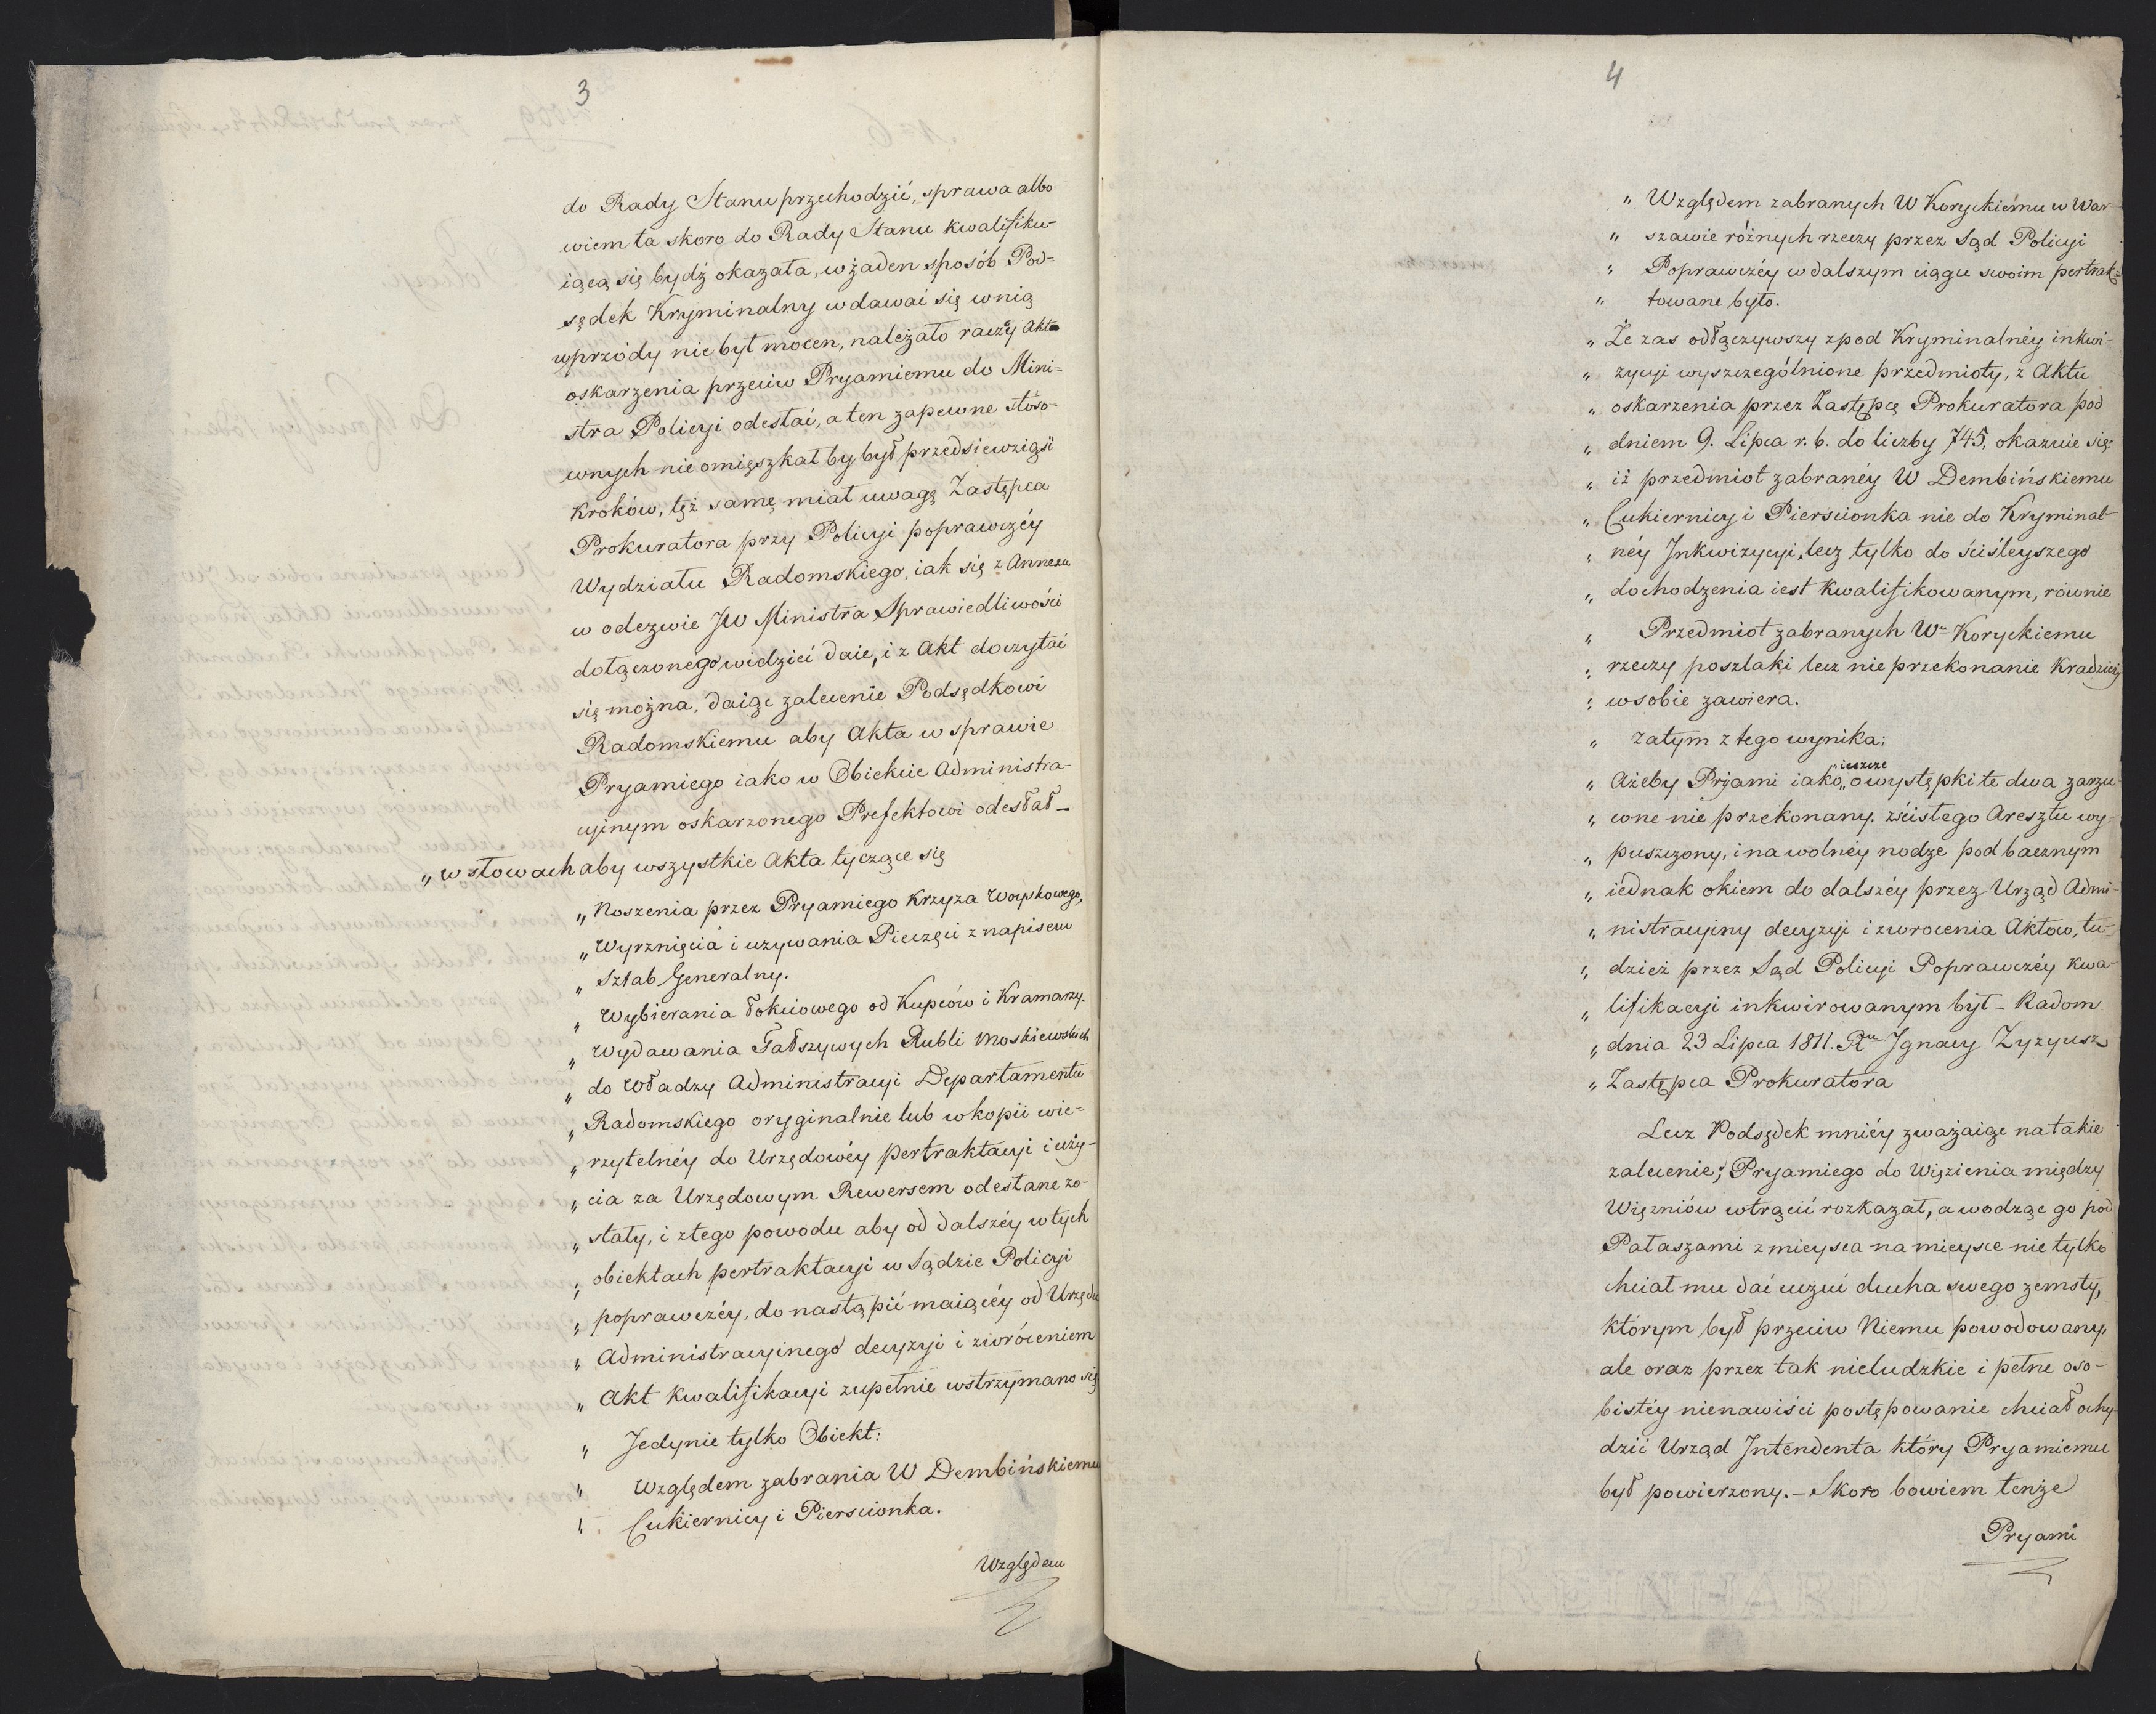 3
do Rady Stanu przechodzić, sprawa albo
wiem ta skoro do Rady Stanu kwalifiku-
iącą się bydź okazała, w żaden sposób Pod=
sędek Kryminalny wdawać się w nią
wprzódy nie był mocen, należało raczéy Akta
oskarżenia przeciw Pryamiemu do Mini=
stra Policyi odesłać, a ten zapewne stoso-
wnych nie omięszkał by był przedsiewziąść
kroków, tęż samę miał uwagę Zastępca
Prokuratora przy Policyi poprawczéy
Wydziału Radomskiego, iak się z Annexu
w odezwie JW Ministra Sprawiedliwości
dołączonego widzieć daie, i z Akt doczytać
się można, daiąc zalecenie Podsędkowi
Radomskiemu aby Akta w sprawie
Pryamiego iako w Obiekcie Administra-
cyinym oskarzonego Prefektowi odesłał –
„ w słowach aby wszystkie Akta tyczące się
„ Noszenia przez Pryamiego Krzyża Woyskowego,
„ Wyrznięcia i uzywania Pieczęci z napisem
„ Sztab Generalny.
„ Wybierania łokciowego od Kupców i Kramarzy.
„ Wydawania Fałszywych Rubli Moskiewskich
„ do Władzy Administracyi Departamentu
„ Radomskiego oryginalnie lub w kopii wie=
„ rzytelnéy do Urzędowéy pertraktacyi i uży-
„ cia za Urzędowym Rewersem odesłane zo-
„ stały, i z tego powodu aby od dalszéy w tych
„ obiektach pertraktacyi w Sądzie Policyi
„ poprawczéy, do nastąpić maiącéy od Urzędu
„ Administracyinego decyzyi i zwróceniem
„ Akt kwalifikacyi zupełnie wstrzymano się
„ Jedynie tylko Obiekt:
„ Względem zabrania W Dembińskiemu
„ Cukiernicy i Pierscionka.
Względem
4
„ Względem zabranych W Koryckiému w War-
„ szawie różnych rzeczy przez Sąd Policyi
„ Poprawczéy w dalszym ciągu swoim pertrak=
„ towane było.
„ Że zas odłączywszy z pod Kryminalnéy inkwi-
„ zycyi wyszczególnione przedmioty, z Aktu
„ oskarzenia przez Zastępcę Prokuratora pod
„ dniem 9. Lipca r. b. do liczby 745, okazuie się:
„ iż przedmiot zabranéy W Dembińskiemu
„ Cukiernicy i Pierscionka nie do Kryminal-
„ néy Inkwizycyi, lecz tylko do ściśleyszego
„ dochodzenia iest kwalifikowanym, równie
„ Przedmiot zabranych Wu Koryckiemu
„ rzeczy poszlaki lecz nie przekonanie Kradzieży
„ w sobie zawiera.
„ Zatym z tego wynika:
„ Ażeby Pryami iako „ieszcze o występki te dwa zarzu-
„ cone nie przekonany. z ścisłego Aresztu wy-
„ puszczony, i na wolnéy nodze pod bacznym
„ iednak okiem do dalszéy przez Urząd Admi-
„ nistracyiny decyzyi i zwrocenia Aktow, tu-
„ dzież przez Sąd Policyi Poprawczéy kwa-
„ lifikacyi inkwirowanym był – Radom
„ dnia 23 Lipca 1811. Ru Jgnacy Zyzyusz
„ Zastępca Prokuratora
Lecz Podsędek mniéy zważaiąc na takie
zalecenie; Pryamiego do Więzienia między
Więzniów wtrącić rozkazał, a wodząc go pod
Pałaszami z mieysca na mieysce nie tylko
chciał mu dać uczuć ducha swego zemsty,
którym był przeciw Niemu powodowany,
ale oraz przez tak nieludzkie i pełne oso-
bistéy nienawiści postępowanie chciał ochy-
dzić Urząd Intendenta który Pryamiemu
był powierzony. – Skoro bowiem tenże
Pryami
I.G. REINHARDT